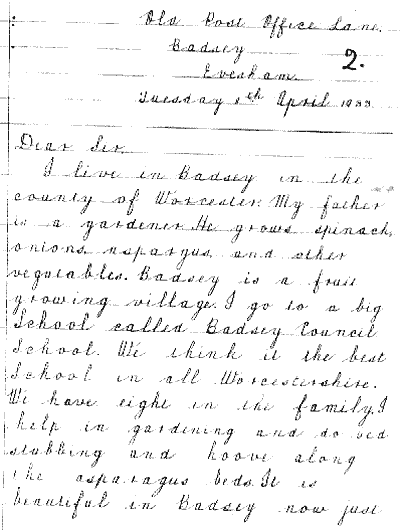 Old Post Office Lane.
Badsey
2.
Evesham.
Tuesday th April 1933
Dear Sir.
I live in Badsey in the
county of Worcester. My father
is a gardener. He grows spinach,
onions, aspargus, and other
vegetables. Badsey is a fruit
growing village. I go to a big
School called Badsey Council
School. We think it the best
School in all Worcestershire.
We have eight in the family. I
help in gardening and do
stubbing and hoove along
the asparagus beds. It is
beautiful in Badsey now just